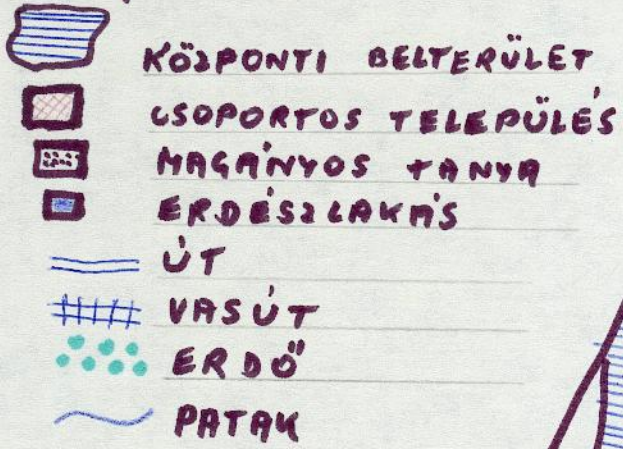 KÖZPONTI BELTERÜLET
CSOPORTOS TELEPÜLÉS
MAGÁNYOS TANYA
ERDÉSZLAKÁS
ÚT
VASÚT
ERDŐ
PATAK